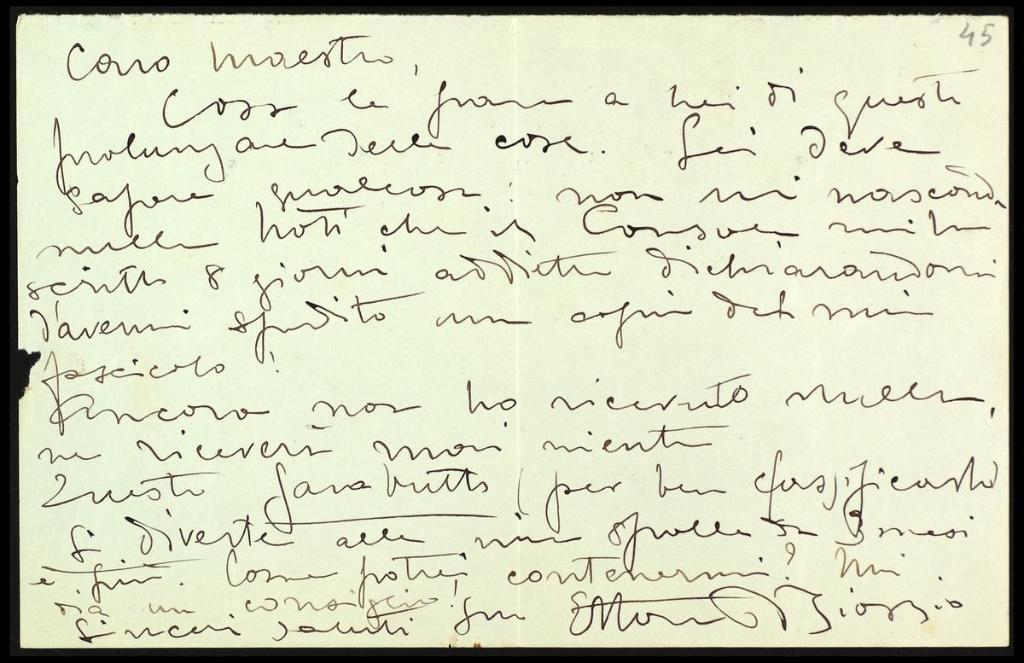 45
Caro Maestro,
Cosa le pare a Lei di questo
prolungare delle cose. Lei deve
sapere qualcosa: non mi nasconda
nulla. Noti che il Console mi ha
scritto 8 giorni addietro dichiarandomi
d'avermi spedito una copia del mio
fascicolo!
Ancora non ho ricevuto nulla,
ne riceverò mai niente
Questo farabutto (per ben classificarlo)
si diverte alle mie spalle da 3 mesi
e più. Come potrei contenermi? Mi
dia un consiglio!
Sinceri saluti suo Ettore